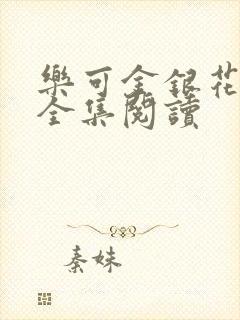 樂可金銀花
全集閱讀
秦妹